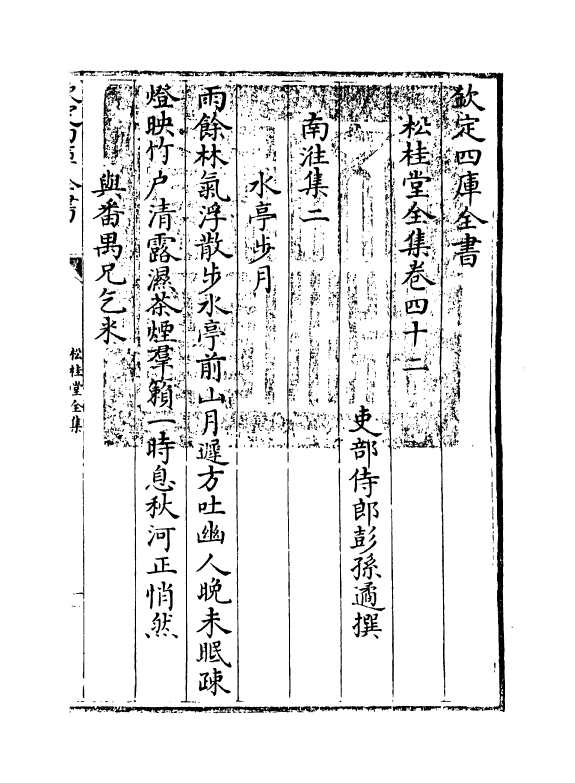 欽定四庫全書
松桂堂全集卷四十二
吏部侍郎彭孫遹撰
南淮集二
水亭步月
雨餘林氣浮散步水亭前山月遲方吐幽人晚未眠疎
燈映竹户清露濕茶煙羣籟一時息秋河正悄然
與番禺兄乞米
松桂堂全集